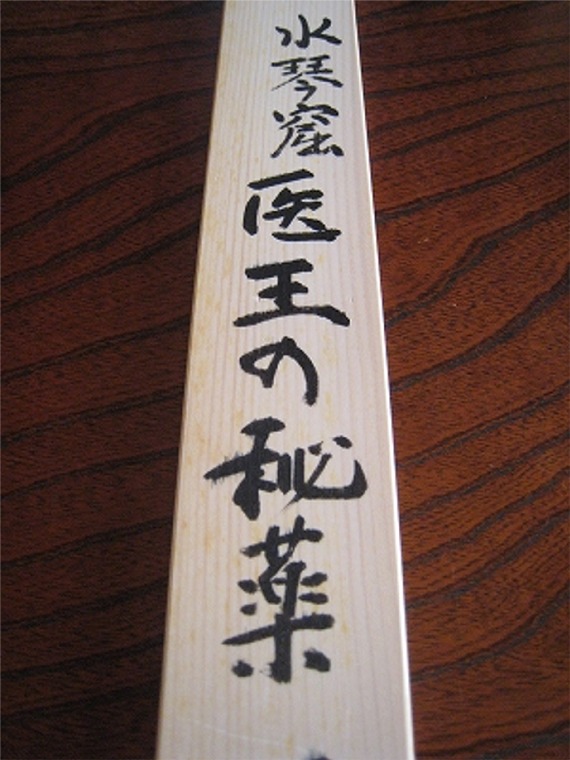 水琴窟医王の秘薬